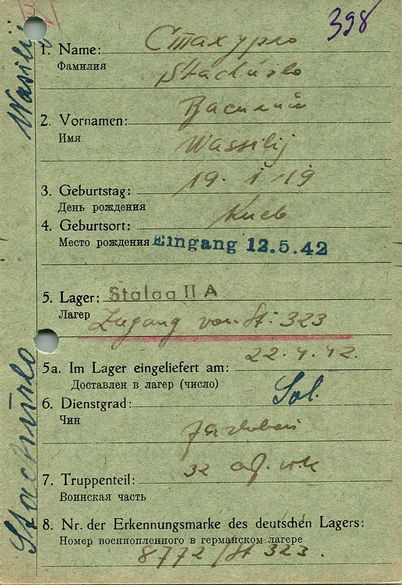 398
1. Name: Стахурло
Фамилия
Stachurlo
2. Vornamen: Василий
Имя
Wassilij
3. Geburtstag: 19. I. 19
День рождения
4. Geburtsort: Киев
Место рождения Eingang 12.5.42
5. Lager: Stalag II A
Лагер
Zugang von St. 323
5a. Im Lager eingeliefert am: 22.4.42.
Доставлен в лагер (число)
6. Dienstgrad: Sol.
Чин
7. Truppenteil: 32
Воинская часть
8. Nr. der Erkennungsmarke des deutschen Lagers:
Номер военнопленного в германском лагере
8772/St 323.
Stachurlo
Wasilij